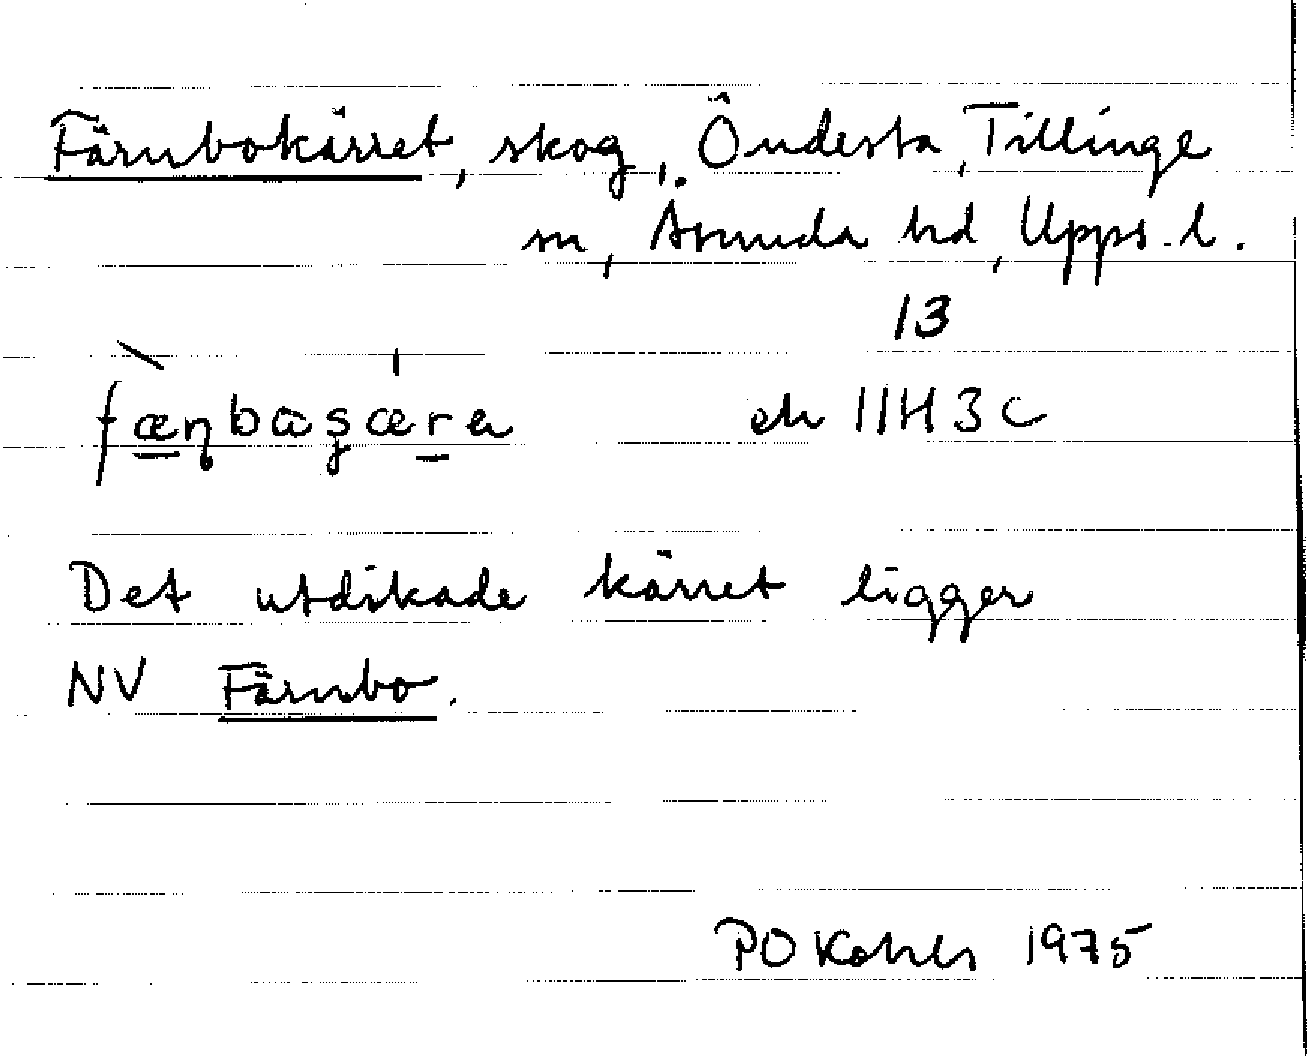 Färnbokärret, skog, Öndesta, Tillinge
sn, Åsunda hd, Upps. l.
13
ek 11H3c
Det utdikade kärret ligger
NV Färnbo.
PO 1975